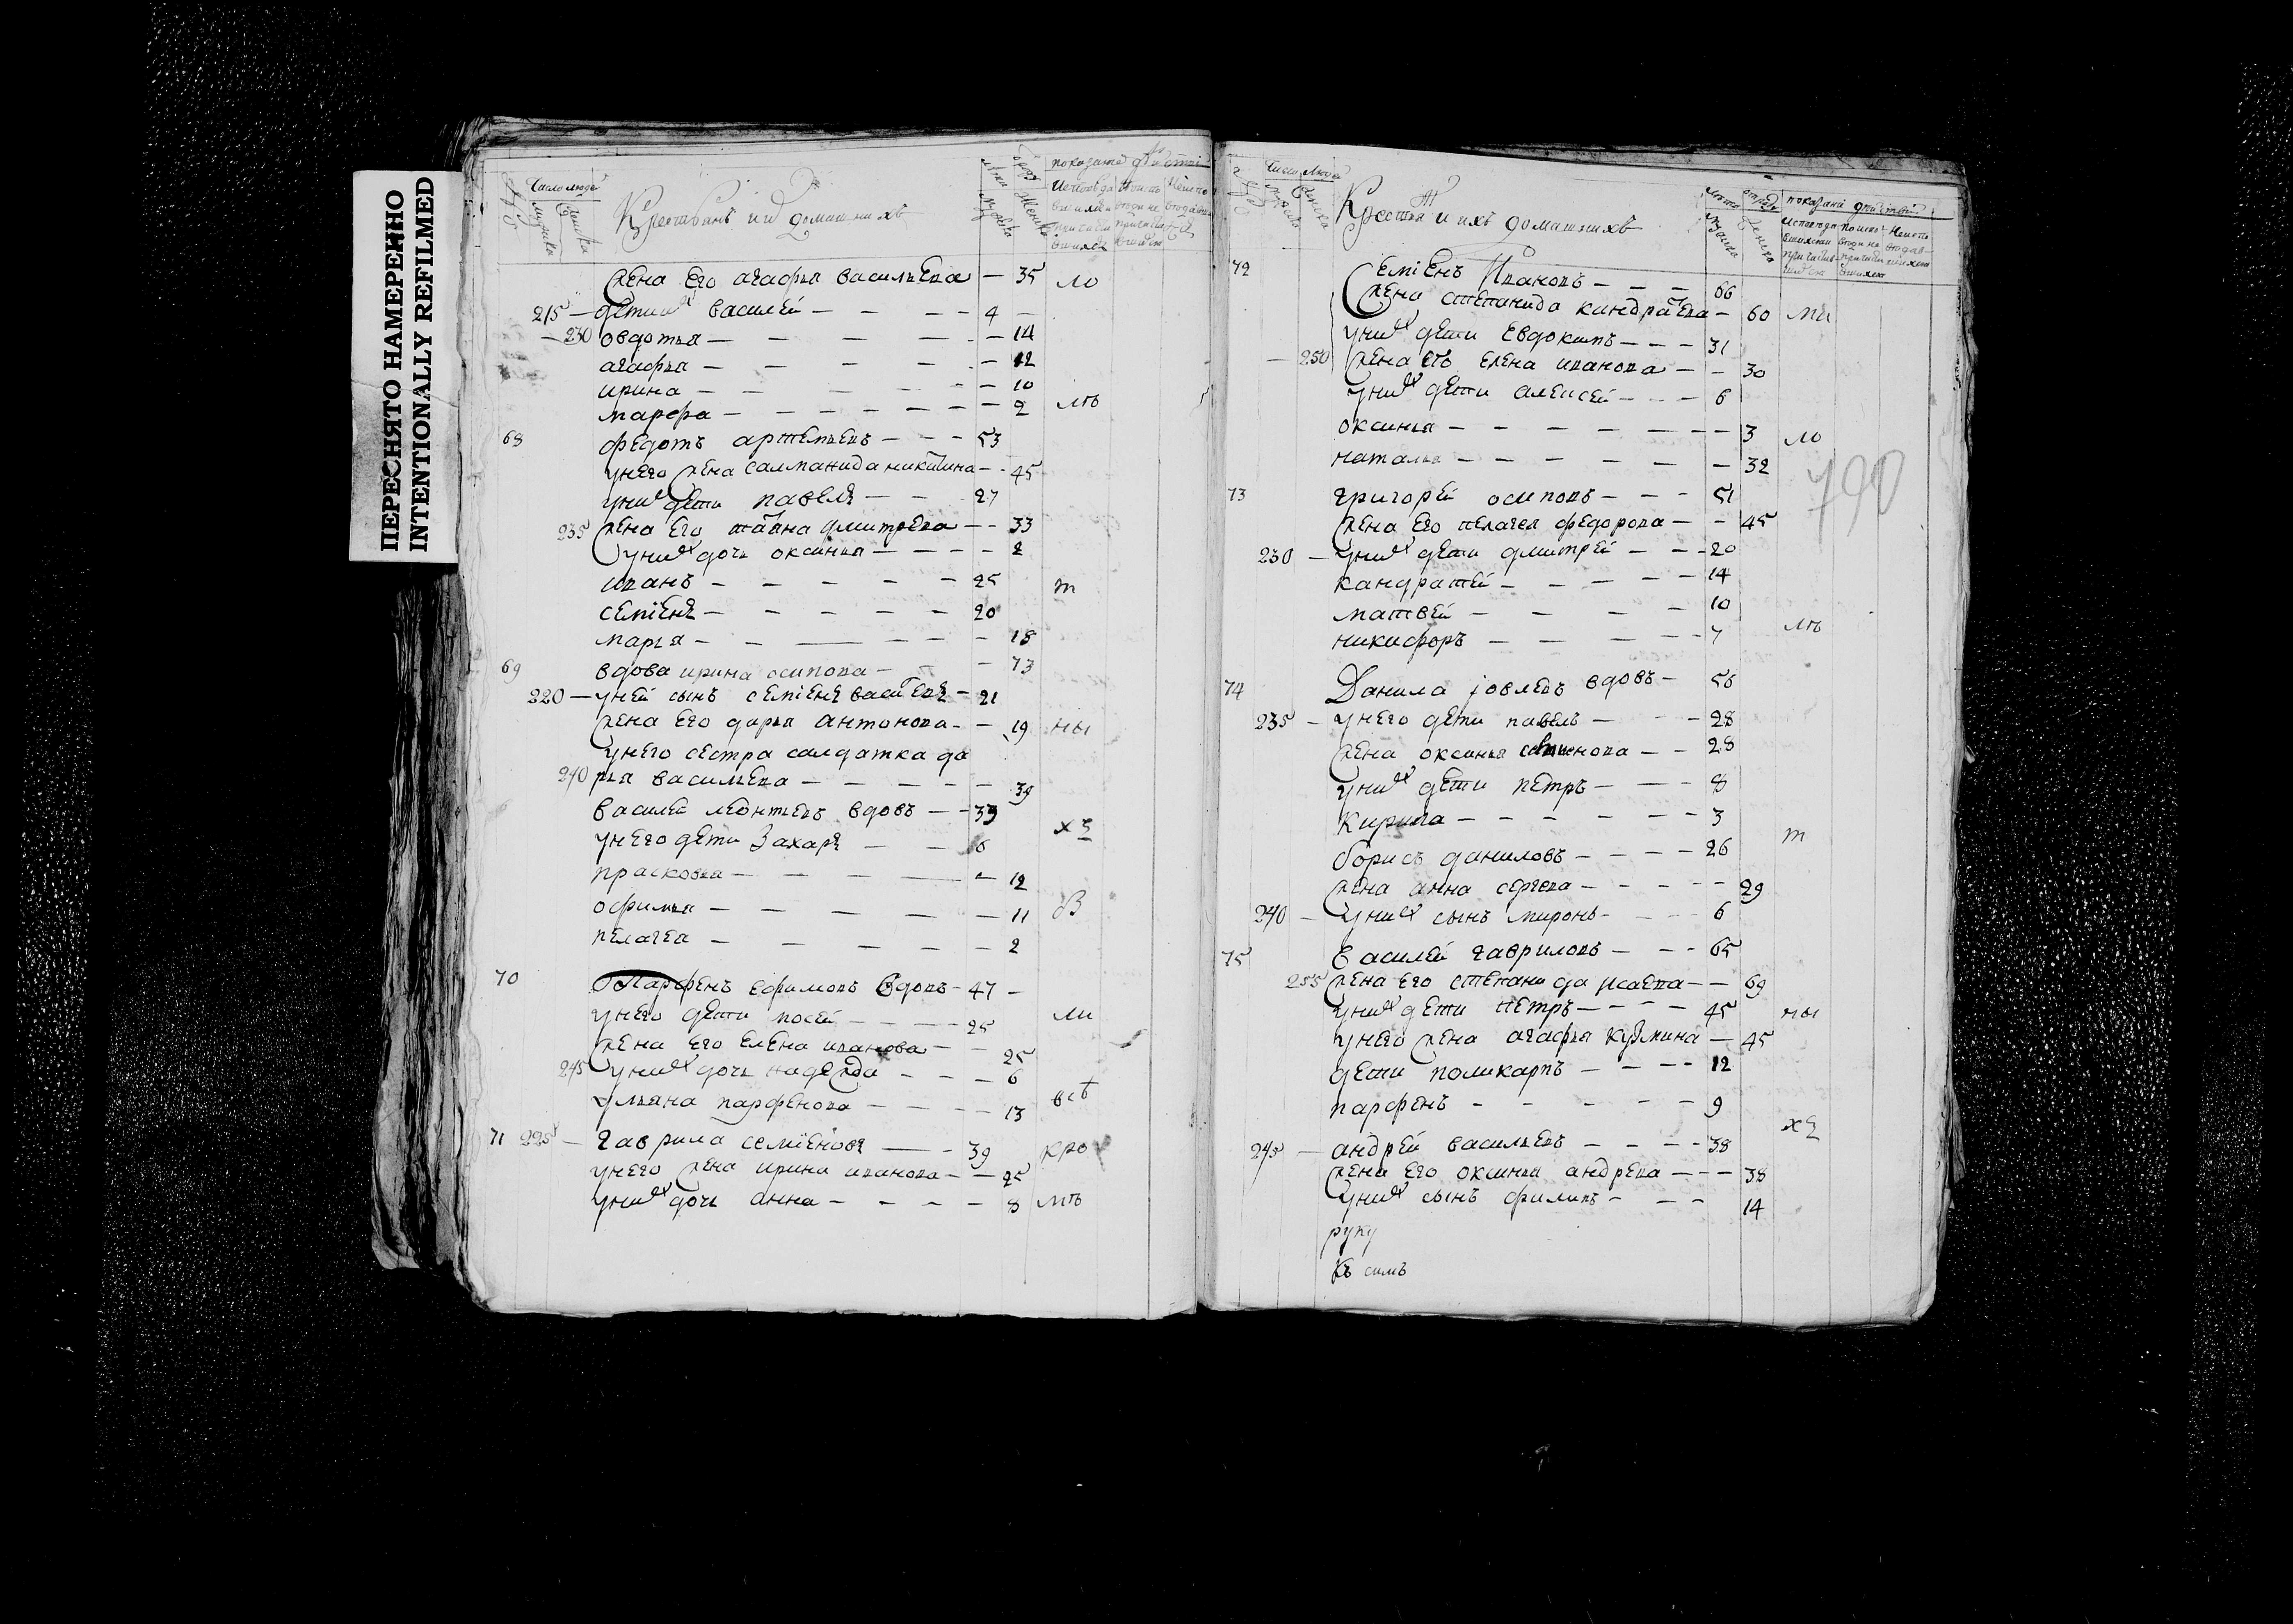 ПЕРЕСНЯТО НАМЕРЕННО
INTENTIONALLY REFILMED
Число людей
мужска
женска
Крестьянъ и их домашнихъ
жена его агафья васильева — 35 ло
215 — дети их василей — 4
230 овдотья — 14
агафья — 12
ирина — 10
марфа — 2 лъ
68 федотъ артемьевъ — 53
у него жена саламанида никитина — 45
у них дети павелъ — 27
235 жена его татьяна дмитрева — 33
у них дочь оксинья — 2
иванъ — 25 т
семіенъ — 20
марья — 18
69 вдова ирина осипова — 73
220 — у ней сынъ семіенъ василевъ — 21
жена его дарья антонова — 19 ны
у него сестра салдатка да
240 рья васильева — 39
василей леонтьевъ вдовъ — 33
у него дети Захаръ — 6 хз
прасковья — 12
офимья — 11
пелагея — 2
70 Парфенъ ефимовъ вдовъ — 47
у него дети мосей — 25 ли
жена его елена иванова — 25
245 у них дочь надежда — 6
ульяна парфенова — 13 всѣ
71 225 — гаврила семіеновъ — 39 кро
у него жена ирина иванова — 25
у них дочь анна — 8 мъ
Число людей
Крестья и ихъ домашнихъ
72 Семіенъ Ивановъ — 66
жена степанида кандратева — 60 ми
у них дети Евдокимъ — 31
250 жена его елена иванова — 30
у них дети алексей — 6
оксинья — 3 ло
наталья — 32
790
73 григорей осиповъ — 51
жена его пелагея федорова — 45
230 — у них дети дмитрей — 20
кандратей — 14
матвей — 10
никифоръ — 7 лъ
74 Данила іовлевъ вдовъ — 56
235 — у него дети павелъ — 28
жена оксинья семионова — 28
у них дети петръ — 8
кирила — 3
борисъ даниловъ — 26 т
жена анна сергева — 29
240 — у них сынъ миронъ — 6
75 василей гавриловъ — 65
255 жена его степанида исаева — 69
у них дети петръ — 45 ны
у него жена агафья кузмина — 45
дети поликарпъ — 12
парфенъ — 9
хз
245 — андрей васильевъ — 38
жена его оксинья андрева — 38
у них сынъ филипъ — 14
руку
къ симъ